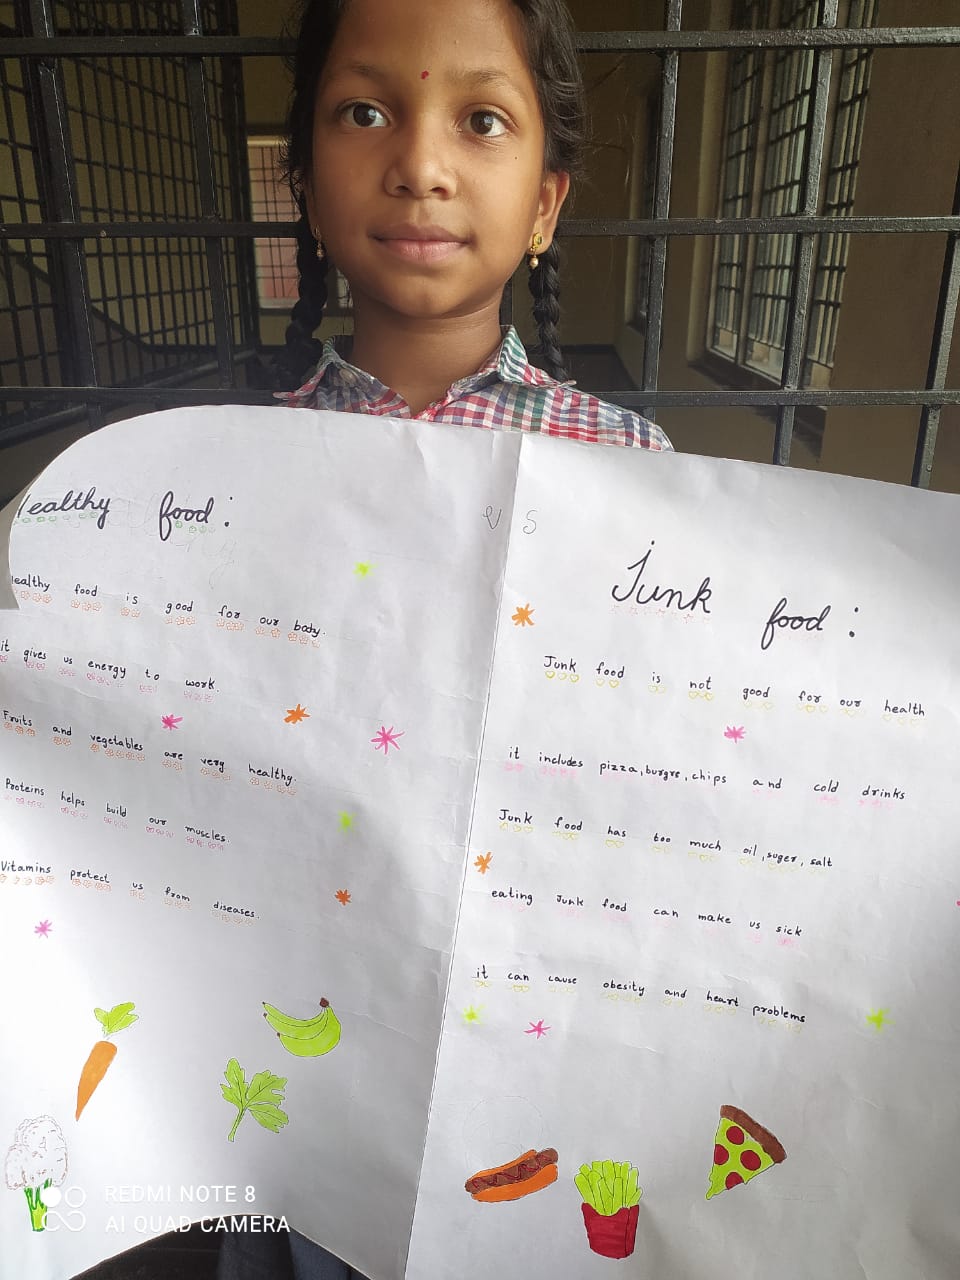 Healthy food:
vs
Healthy food is good for our body.
it gives us energy to work.
Fruits and vegetables are very healthy.
Proteins helps build our muscles.
Vitamins protect us from diseases.
Junk food:
Junk food is not good for our health
it includes pizza, burgre, chips and cold drinks
Junk food has too much oil, suger, salt
eating Junk food can make us sick
it can cause obesity and heart problems
REDMI NOTE 8
AI QUAD CAMERA